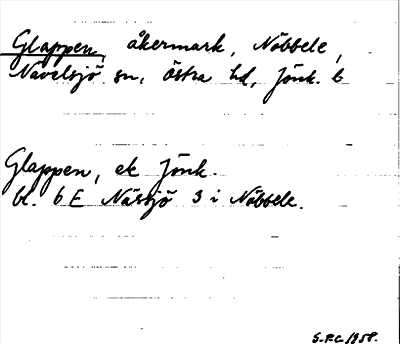 Glappen, åkermark, Nöbbele,
Nävelsjö sn, Östra hd, Jönk. l.
Glappen, ek Jönk.
bl. 6 E Näsbjö 3 i Nöbbele.
S.F.C. 1958.